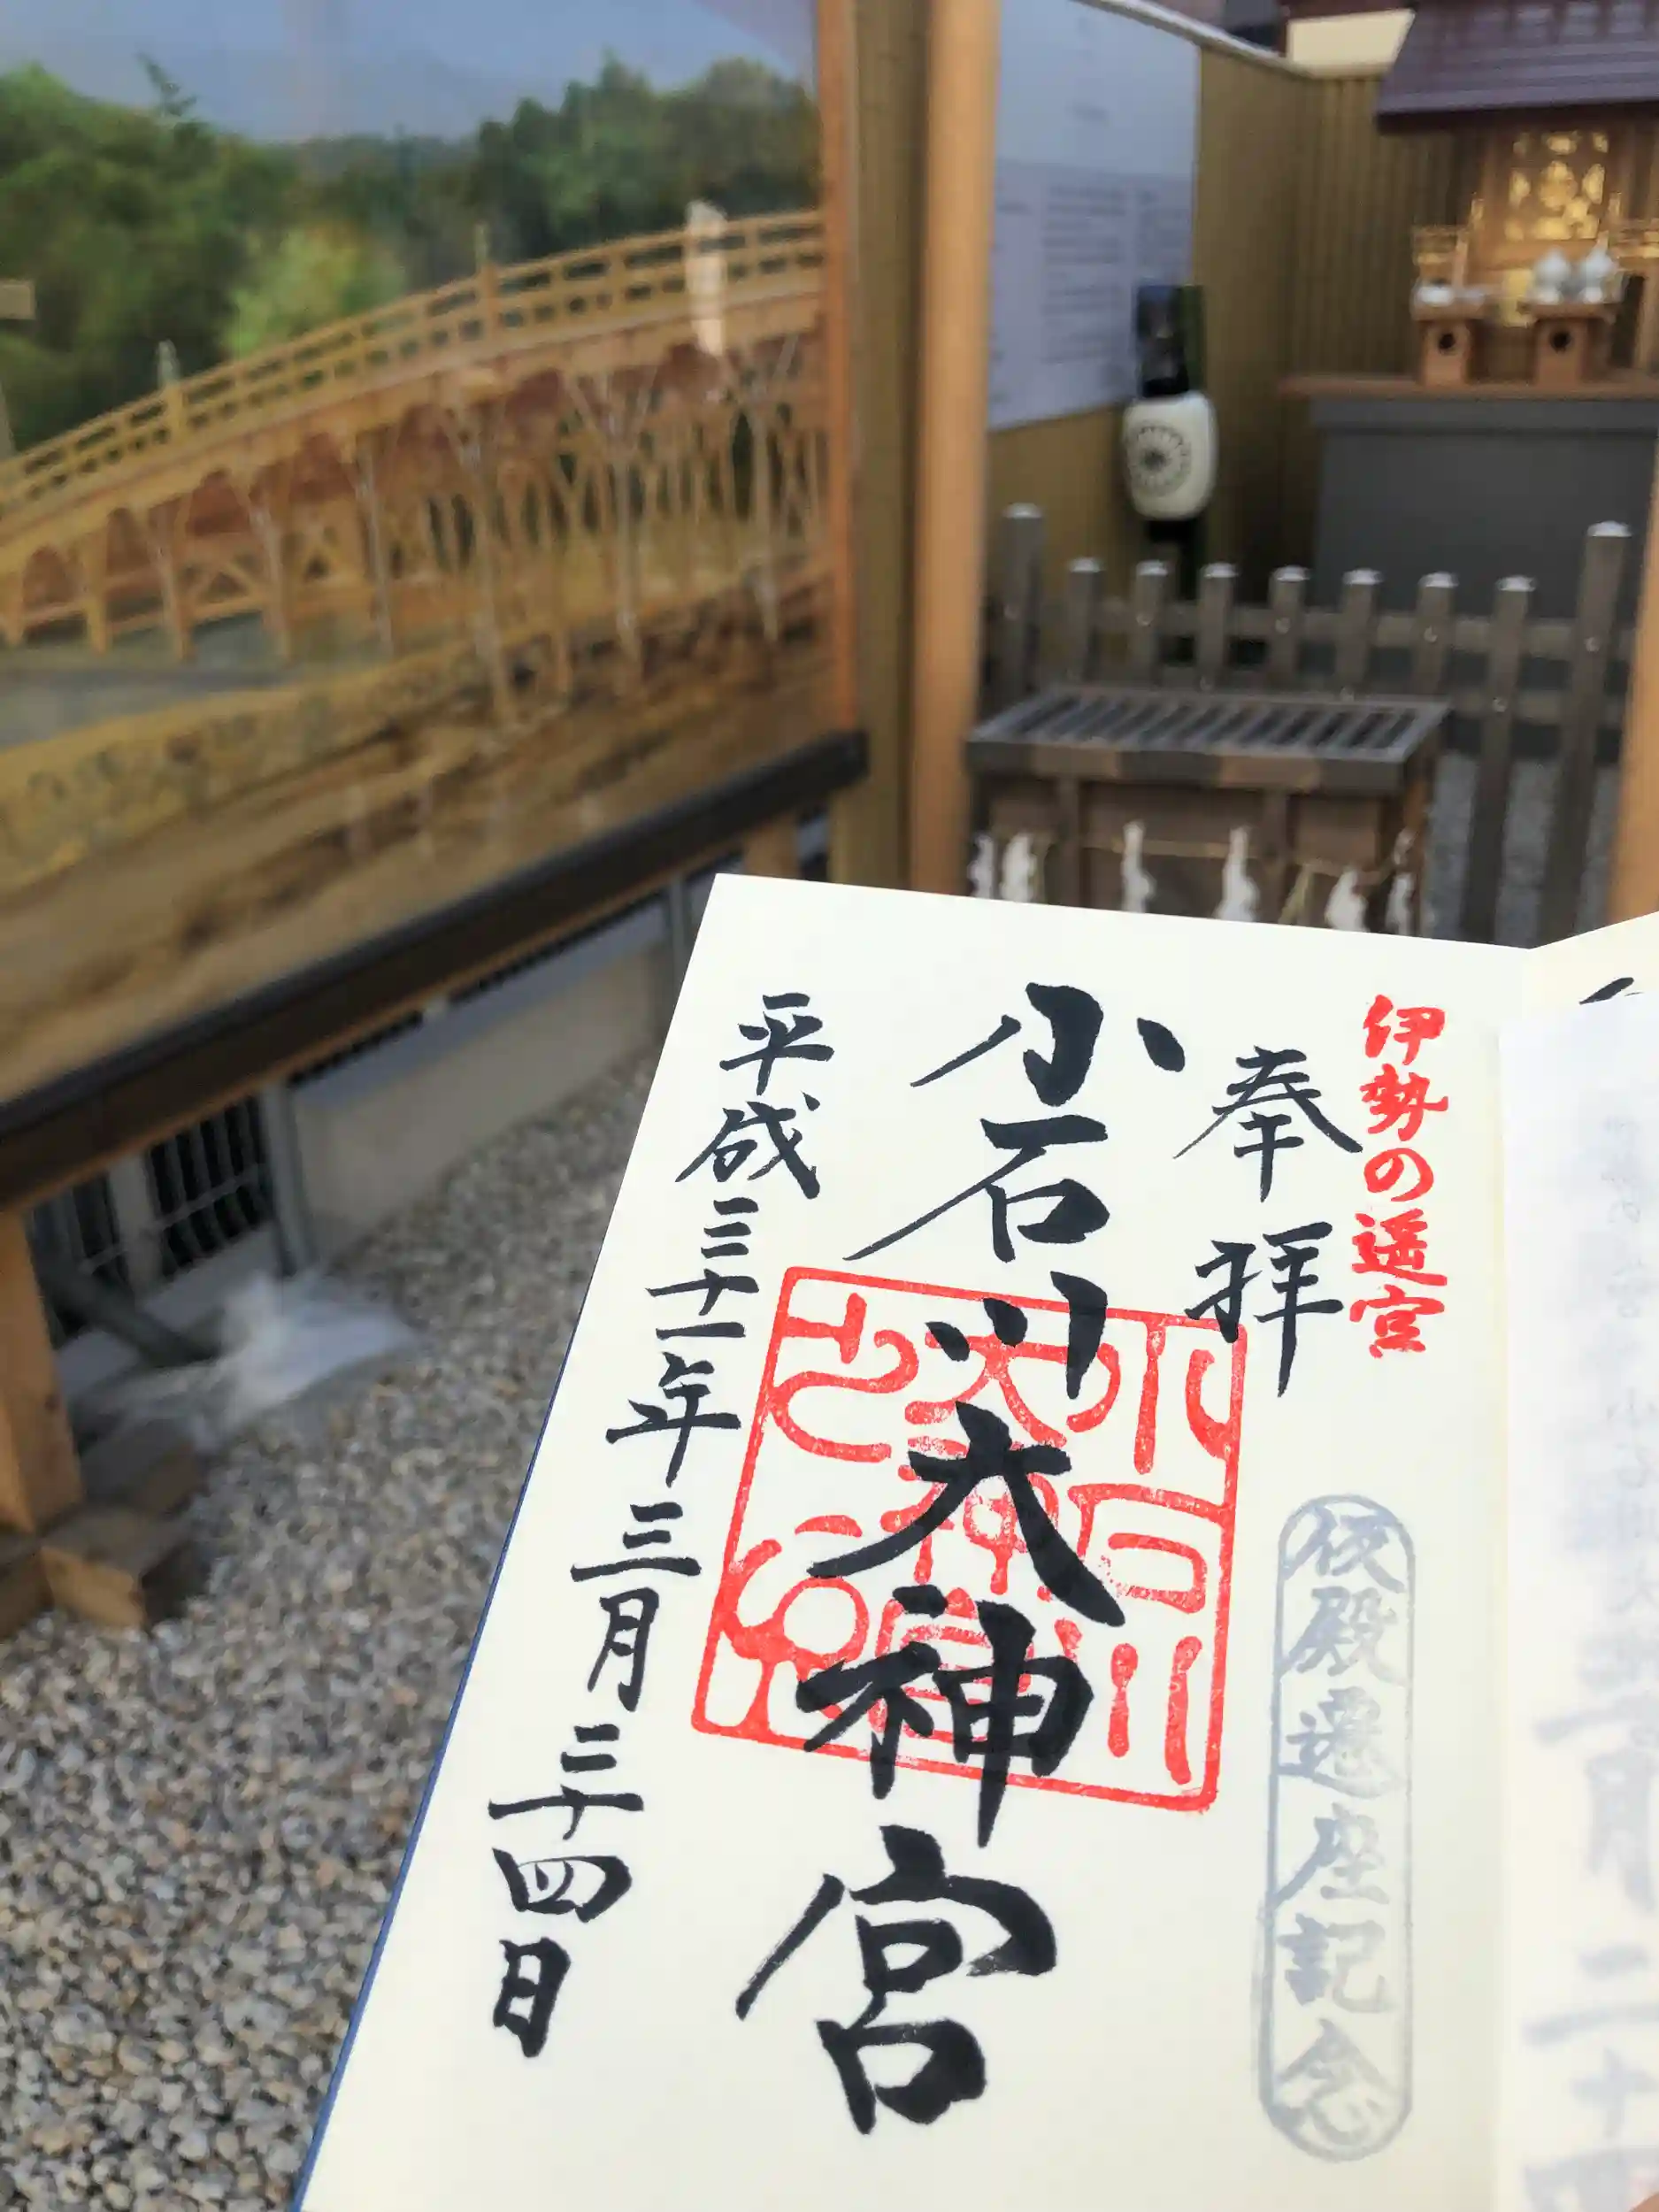 伊勢の遥宮
奉拝
仮殿遷座記念
小石川大神宮
平成三十一年三月二十四日